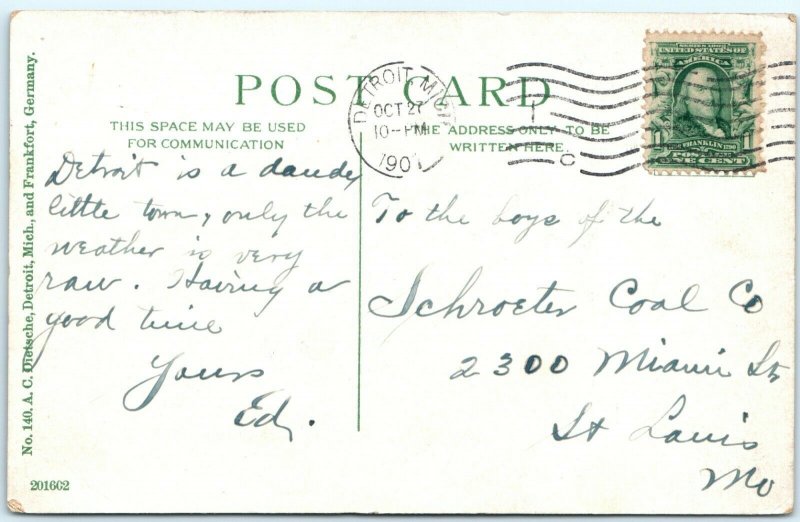 POST CARD
THIS SPACE MAY BE USED
FOR COMMUNICATION
THE ADDRESS ONLY TO BE
WRITTEN HERE.
DETROIT, MICH
OCT 27
10-PM
190
C
SERIES 1902
UNITED STATES OF
AMERICA
FRANKLIN
1 POSTAGE 1
ONE CENT
Detroit is a dandy
little town, only the
weather is very
raw. Having a
good time
Yours
Ed.
To the boys of the
Schroeter Coal Co
2300 Miami St
St Louis
Mo
No. 140. A. C. Dietsche, Detroit, Mich., and Frankfort, Germany.
201662